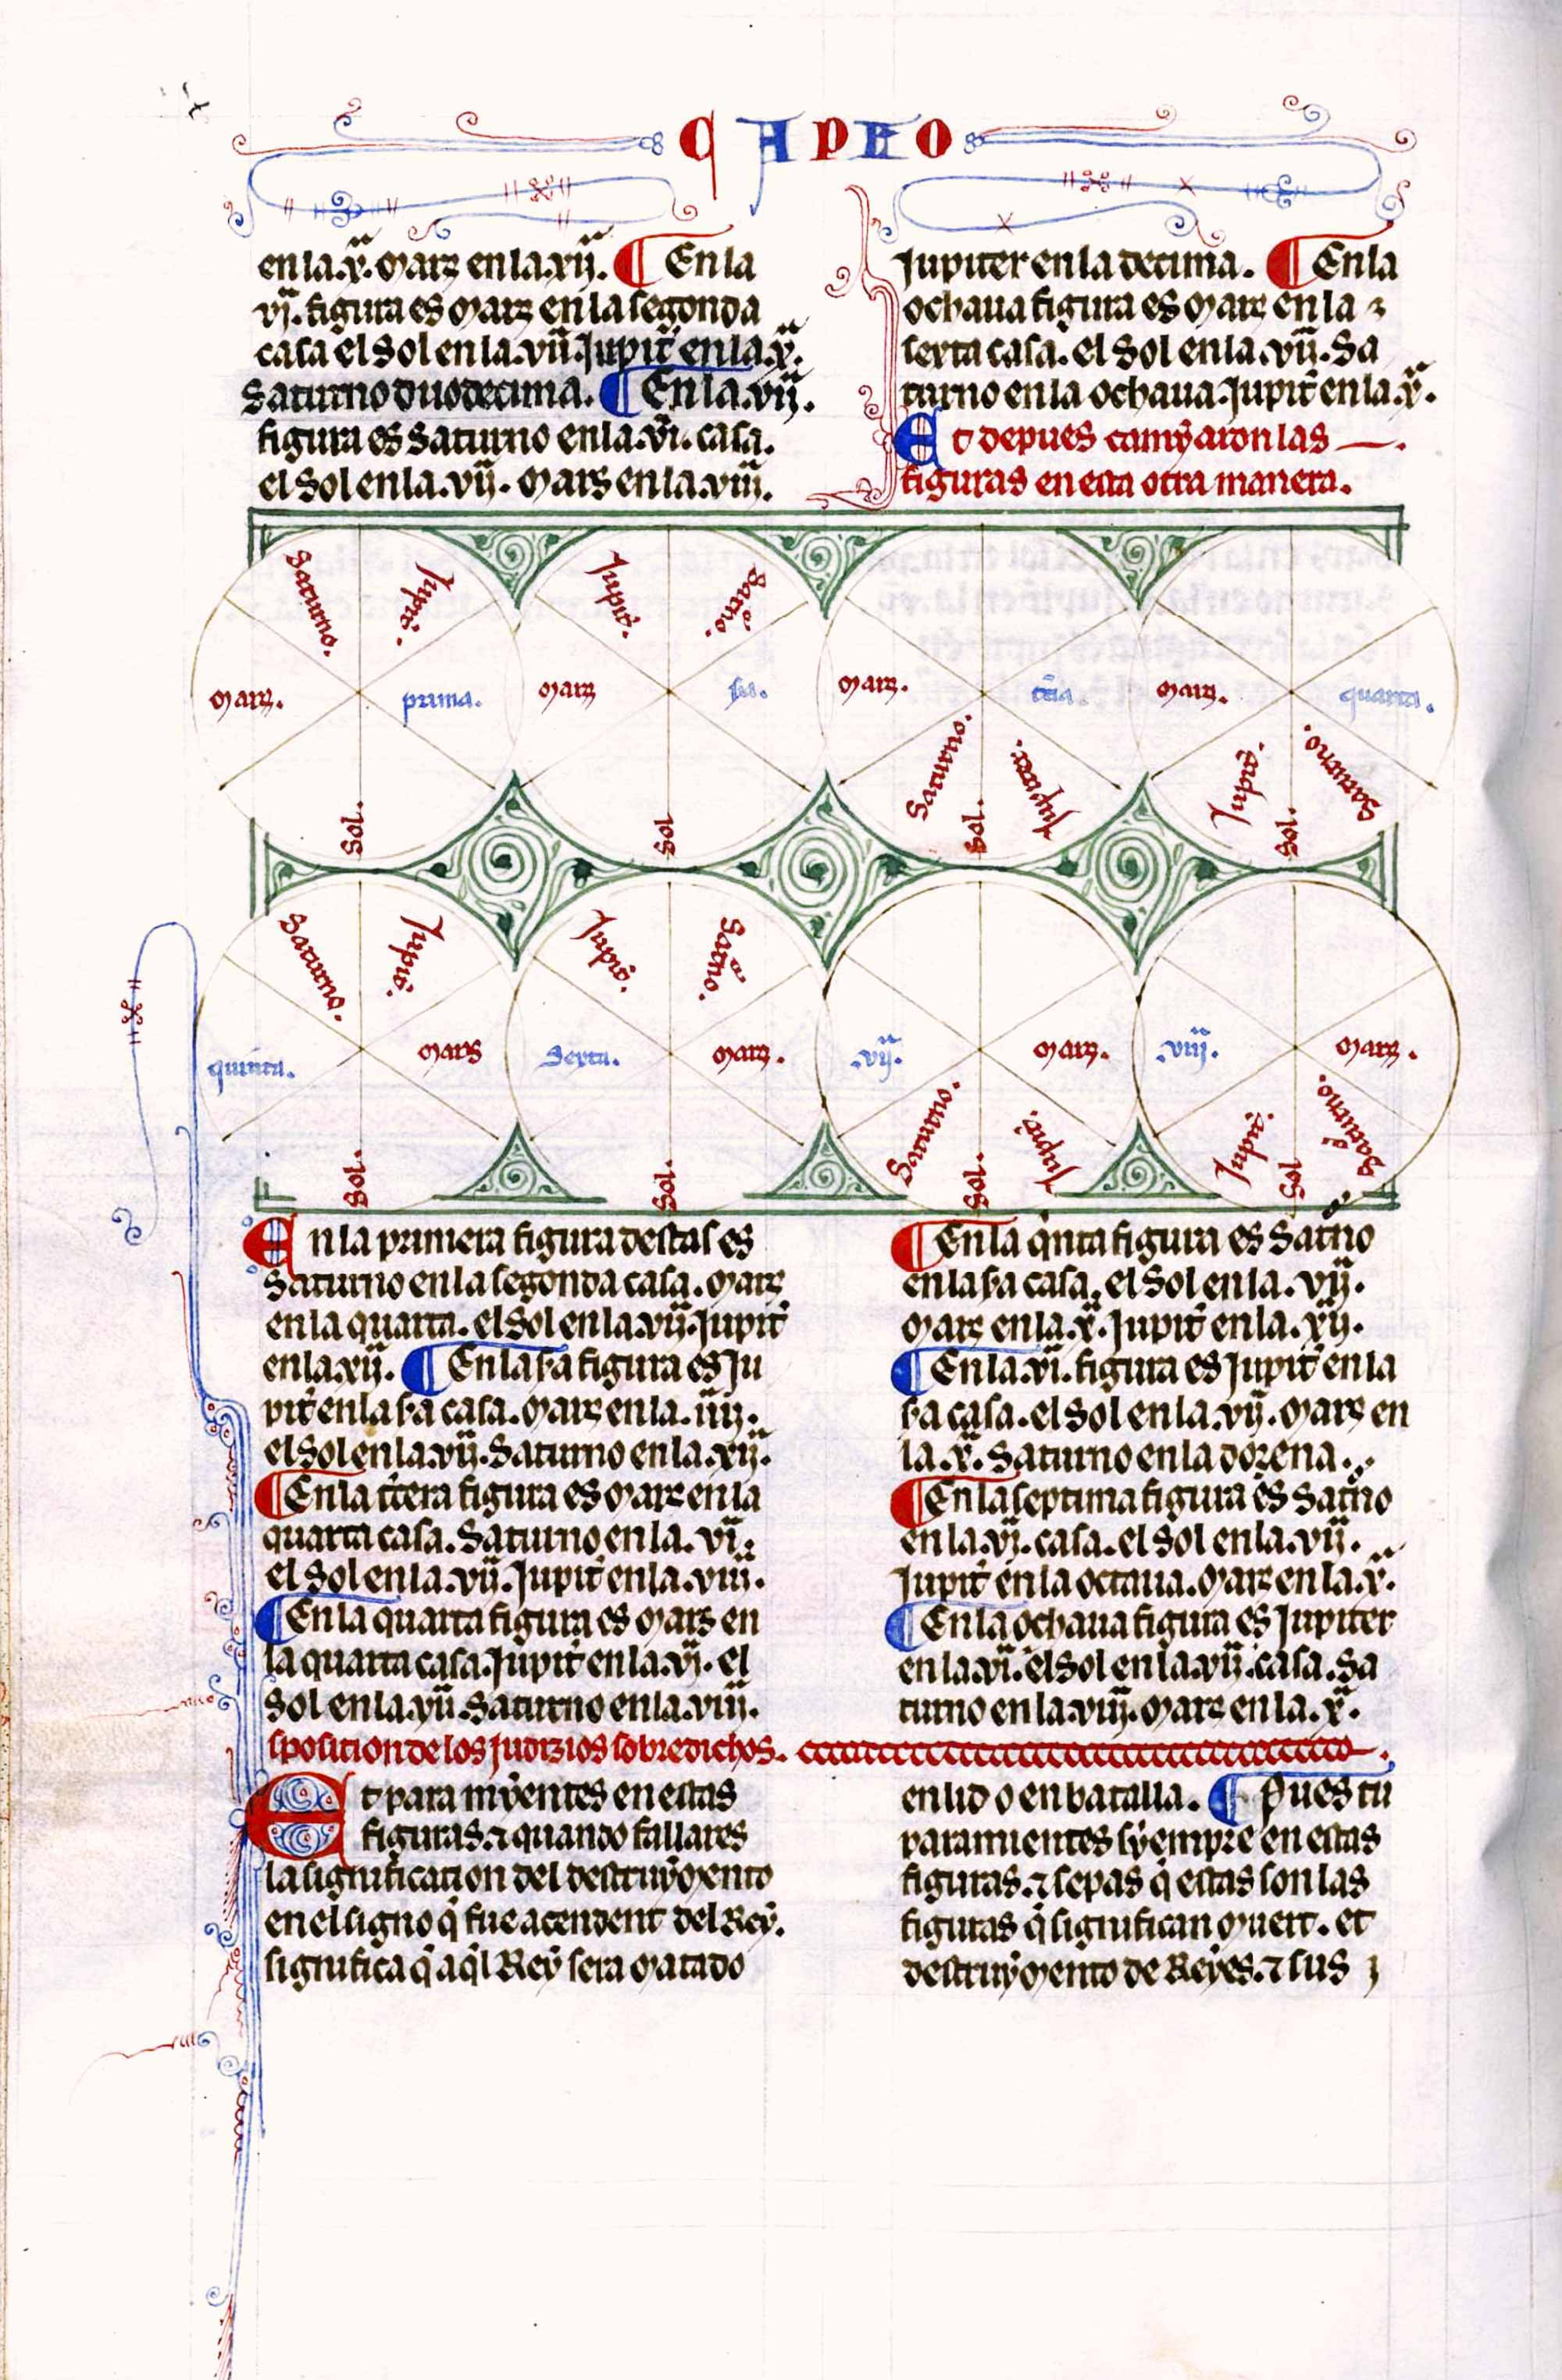 CAPRO
en la .xª. Marz en la .xijª. ¶ En la
vjª. figura es Marz en la segonda
casa el Sol en la .vijª. Jupit̃ en la .xª.
Saturno duodecima. ¶ En la .vijª.
figura es Saturno en la .vjª. casa.
el Sol en la .vijª. Mars en la .viijª.
Jupiter en la decima. ¶ En la
ochaua figura es Marz en la
sexta casa. el Sol en la .vijª. Sa
turno en la ochaua. Jupit̃ en la .xª.
Et depues camyaron las
figuras en esta otra manera.
Saturno.
Jupit̃.
Marz.
prima.
Sol.
Jupit̃.
Sat̃no.
Marz
Sol
Marz.
t̃cia.
Saturno.
Sol.
Jupiter.
Marz.
quarta.
Jupit̃.
Sol.
Saturno.
Saturno.
Jupit̃.
quinta.
Mars
Sol.
Jupit̃.
Sat̃no.
Sexta.
Marz.
Sol.
.vijª.
Marz.
Saturno.
Sol.
Jupit̃.
.viijª.
Marz.
Jupit̃.
Sol
Saturno.
En la primera figura destas es
Saturno en la segonda casa. Marz
en la quarta. el Sol en la .vijª. Jupit̃
en la .xijª. ¶ En la sª̃a figura es Ju
pit̃ en la sª̃a casa. Marz en la .iiijª.
el Sol en la .vijª. Saturno en la .xijª.
¶ En la t̃cera figura es Marz en la
quarta casa. Saturno en la .vjª.
el Sol en la .vijª. Jupit̃ en la .viijª.
¶ En la quarta figura es Mars en
la quarta casa. Jupit̃ en la .vjª. el
Sol en la .vijª. Saturno en la .viijª.
¶ En la q̃nta figura es Sat̃no
en la sª̃a casa. el Sol en la .vijª.
Marz en la .xª. Jupit̃ en la .xijª.
¶ En la .vjª. figura es Jupit̃ en la
sª̃a casa. el Sol en la .vijª. Marz en
la .xª. Saturno en la dozena.
¶ En la septima figura es Sat̃no
en la .vjª. casa. el Sol en la .vijª.
Jupit̃ en la octaua. Marz en la .xª.
¶ En la ochaua figura es Jupiter
en la .vjª. el Sol en la .vijª. casa. Sa
turno en la .viijª. Marz en la .xª.
sposition de los Judizios sobredichos.
Et para myentes en estas
figuras. ⁊ quando fallares
la significacion del destruymento
en el signo q̃ fue acendent del Rey.
significa q̃ aq̃l Rey sera matado
en lid o en batalla. ¶ Pues tu
paramientes syempre en estas
figuras. ⁊ sepas q̃ estas son las
figuras q̃ significan muert. et
destruymento de Reyes. ⁊ sus